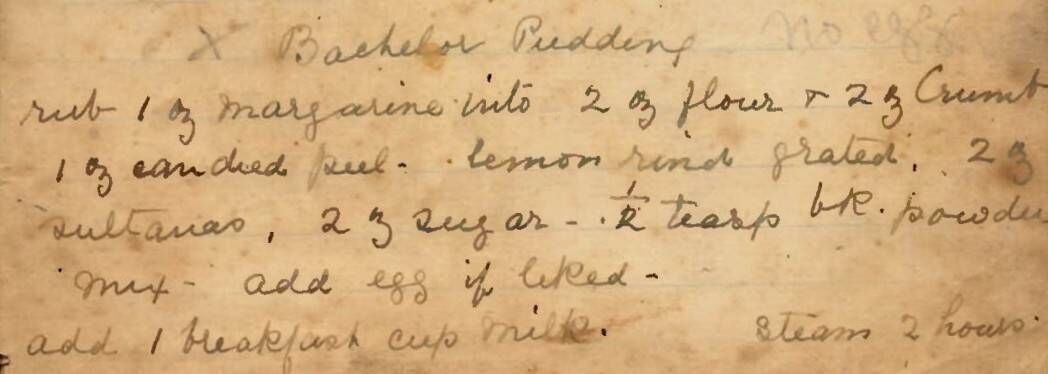 X Bachelor Pudding No egg
rub 1 oz margarine into 2 oz flour + 2 oz Crumb
1 oz candied peel - lemon rind grated, 2 oz
sultanas, 2 oz sugar - 1/2 teasp bk. powder
mix - add egg if liked -
add 1 breakfast cup milk. Steam 2 hours.